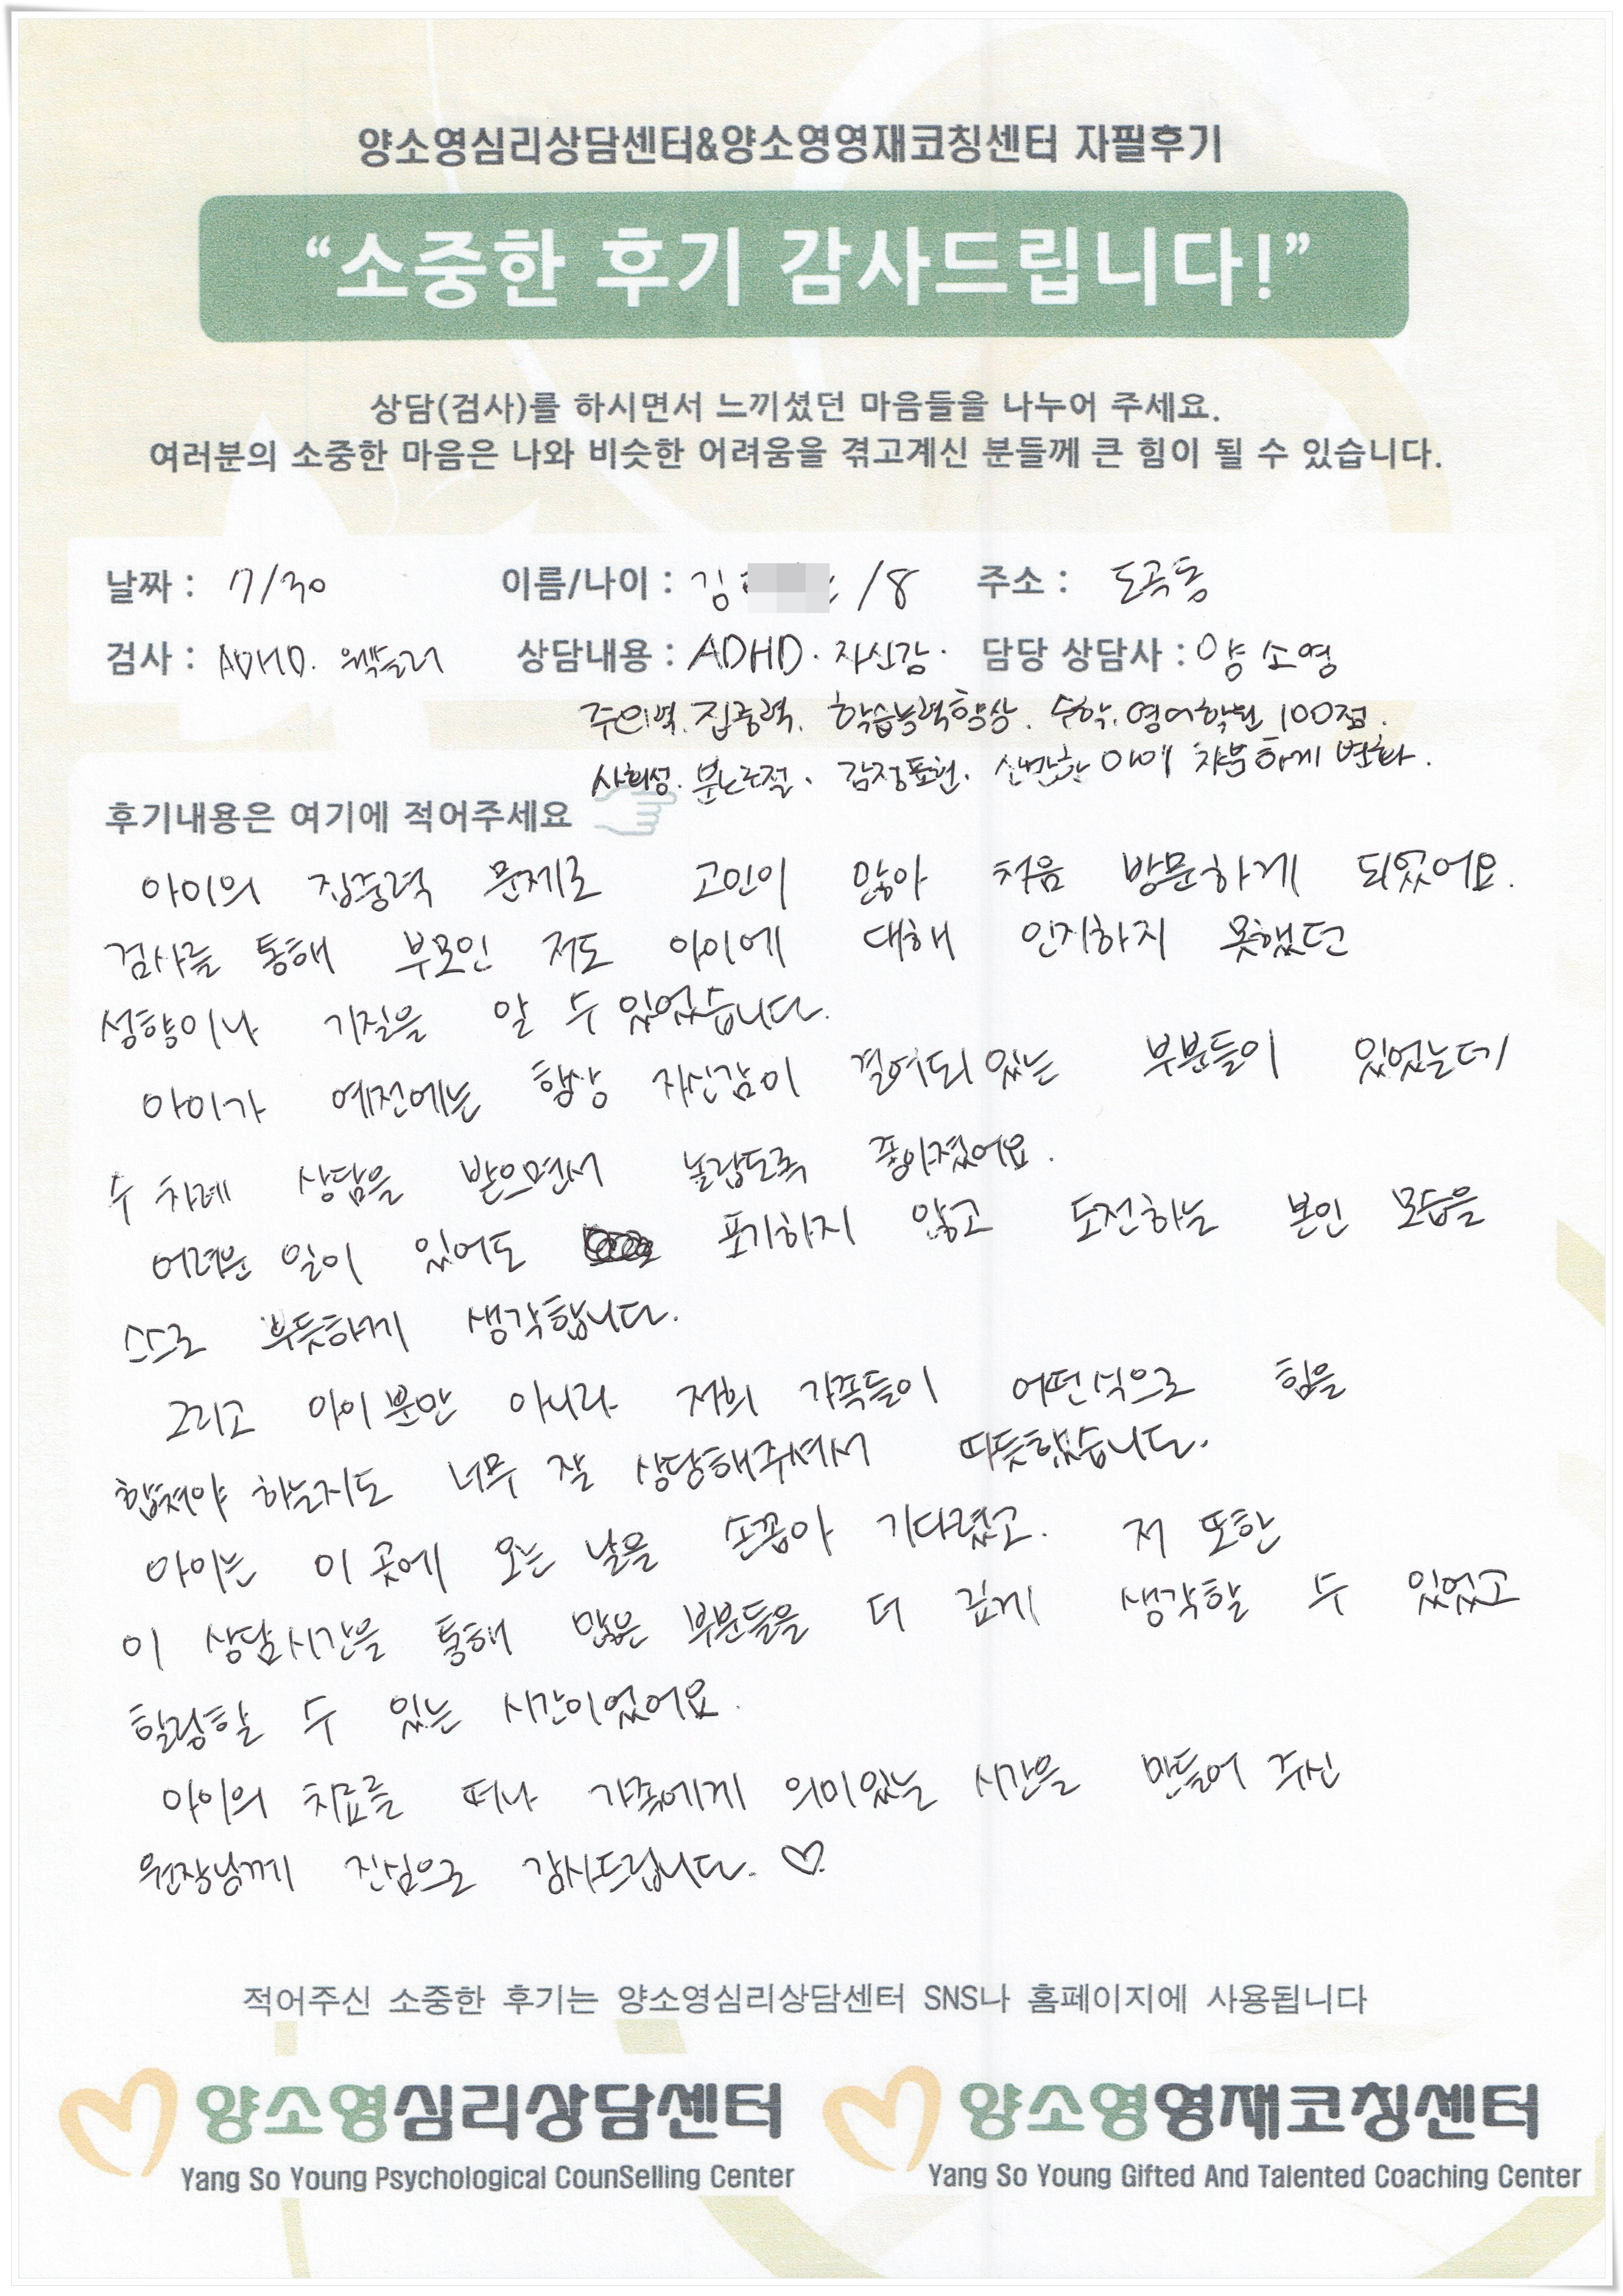 양소영심리상담센터&양소영영재코칭센터 자필후기
“소중한 후기 감사드립니다!”
상담(검사)를 하시면서 느끼셨던 마음들을 나누어 주세요.
여러분의 소중한 마음은 나와 비슷한 어려움을 겪고계신 분들께 큰 힘이 될 수 있습니다.
날짜 : 7/30 이름/나이 : 김 /8 주소 : 도곡동
검사 : ADHD. 웩슬러 상담내용 : ADHD. 자신감. 담당 상담사 : 양소영
주의력. 집중력. 학습능력향상. 수학. 영어학원 100점.
사회성. 분노조절. 감정표현. 산만한 아이 차분하게 변화.
후기내용은 여기에 적어주세요
아이의 집중력 문제로 고민이 많아 처음 방문하게 되었어요.
검사를 통해 부모인 저도 아이에 대해 인지하지 못했던
성향이나 기질을 알 수 있었습니다.
아이가 예전에는 항상 자신감이 결여되있는 부분들이 있었는데
수 차례 상담을 받으면서 놀랍도록 좋아졌어요.
어려운 일이 있어도 포기하지 않고 도전하는 본인 모습을
스스로 뿌듯하게 생각합니다.
그리고 아이뿐만 아니라 저희 가족들이 어떤식으로 힘을
합쳐야 하는지도 너무 잘 상담해주셔서 따듯했습니다.
아이는 이 곳에 오는 날을 손꼽아 기다렸고. 저 또한
이 상담시간을 통해 많은 부분들을 더 깊게 생각할 수 있었고
힐링할 수 있는 시간이었어요.
아이의 치료를 떠나 가족에게 의미있는 시간을 만들어 주신
원장님께 진심으로 감사드립니다. ♡
적어주신 소중한 후기는 양소영심리상담센터 SNS나 홈페이지에 사용됩니다
양소영심리상담센터 양소영영재코칭센터
Yang So Young Psychological CounSelling Center Yang So Young Gifted And Talented Coaching Center